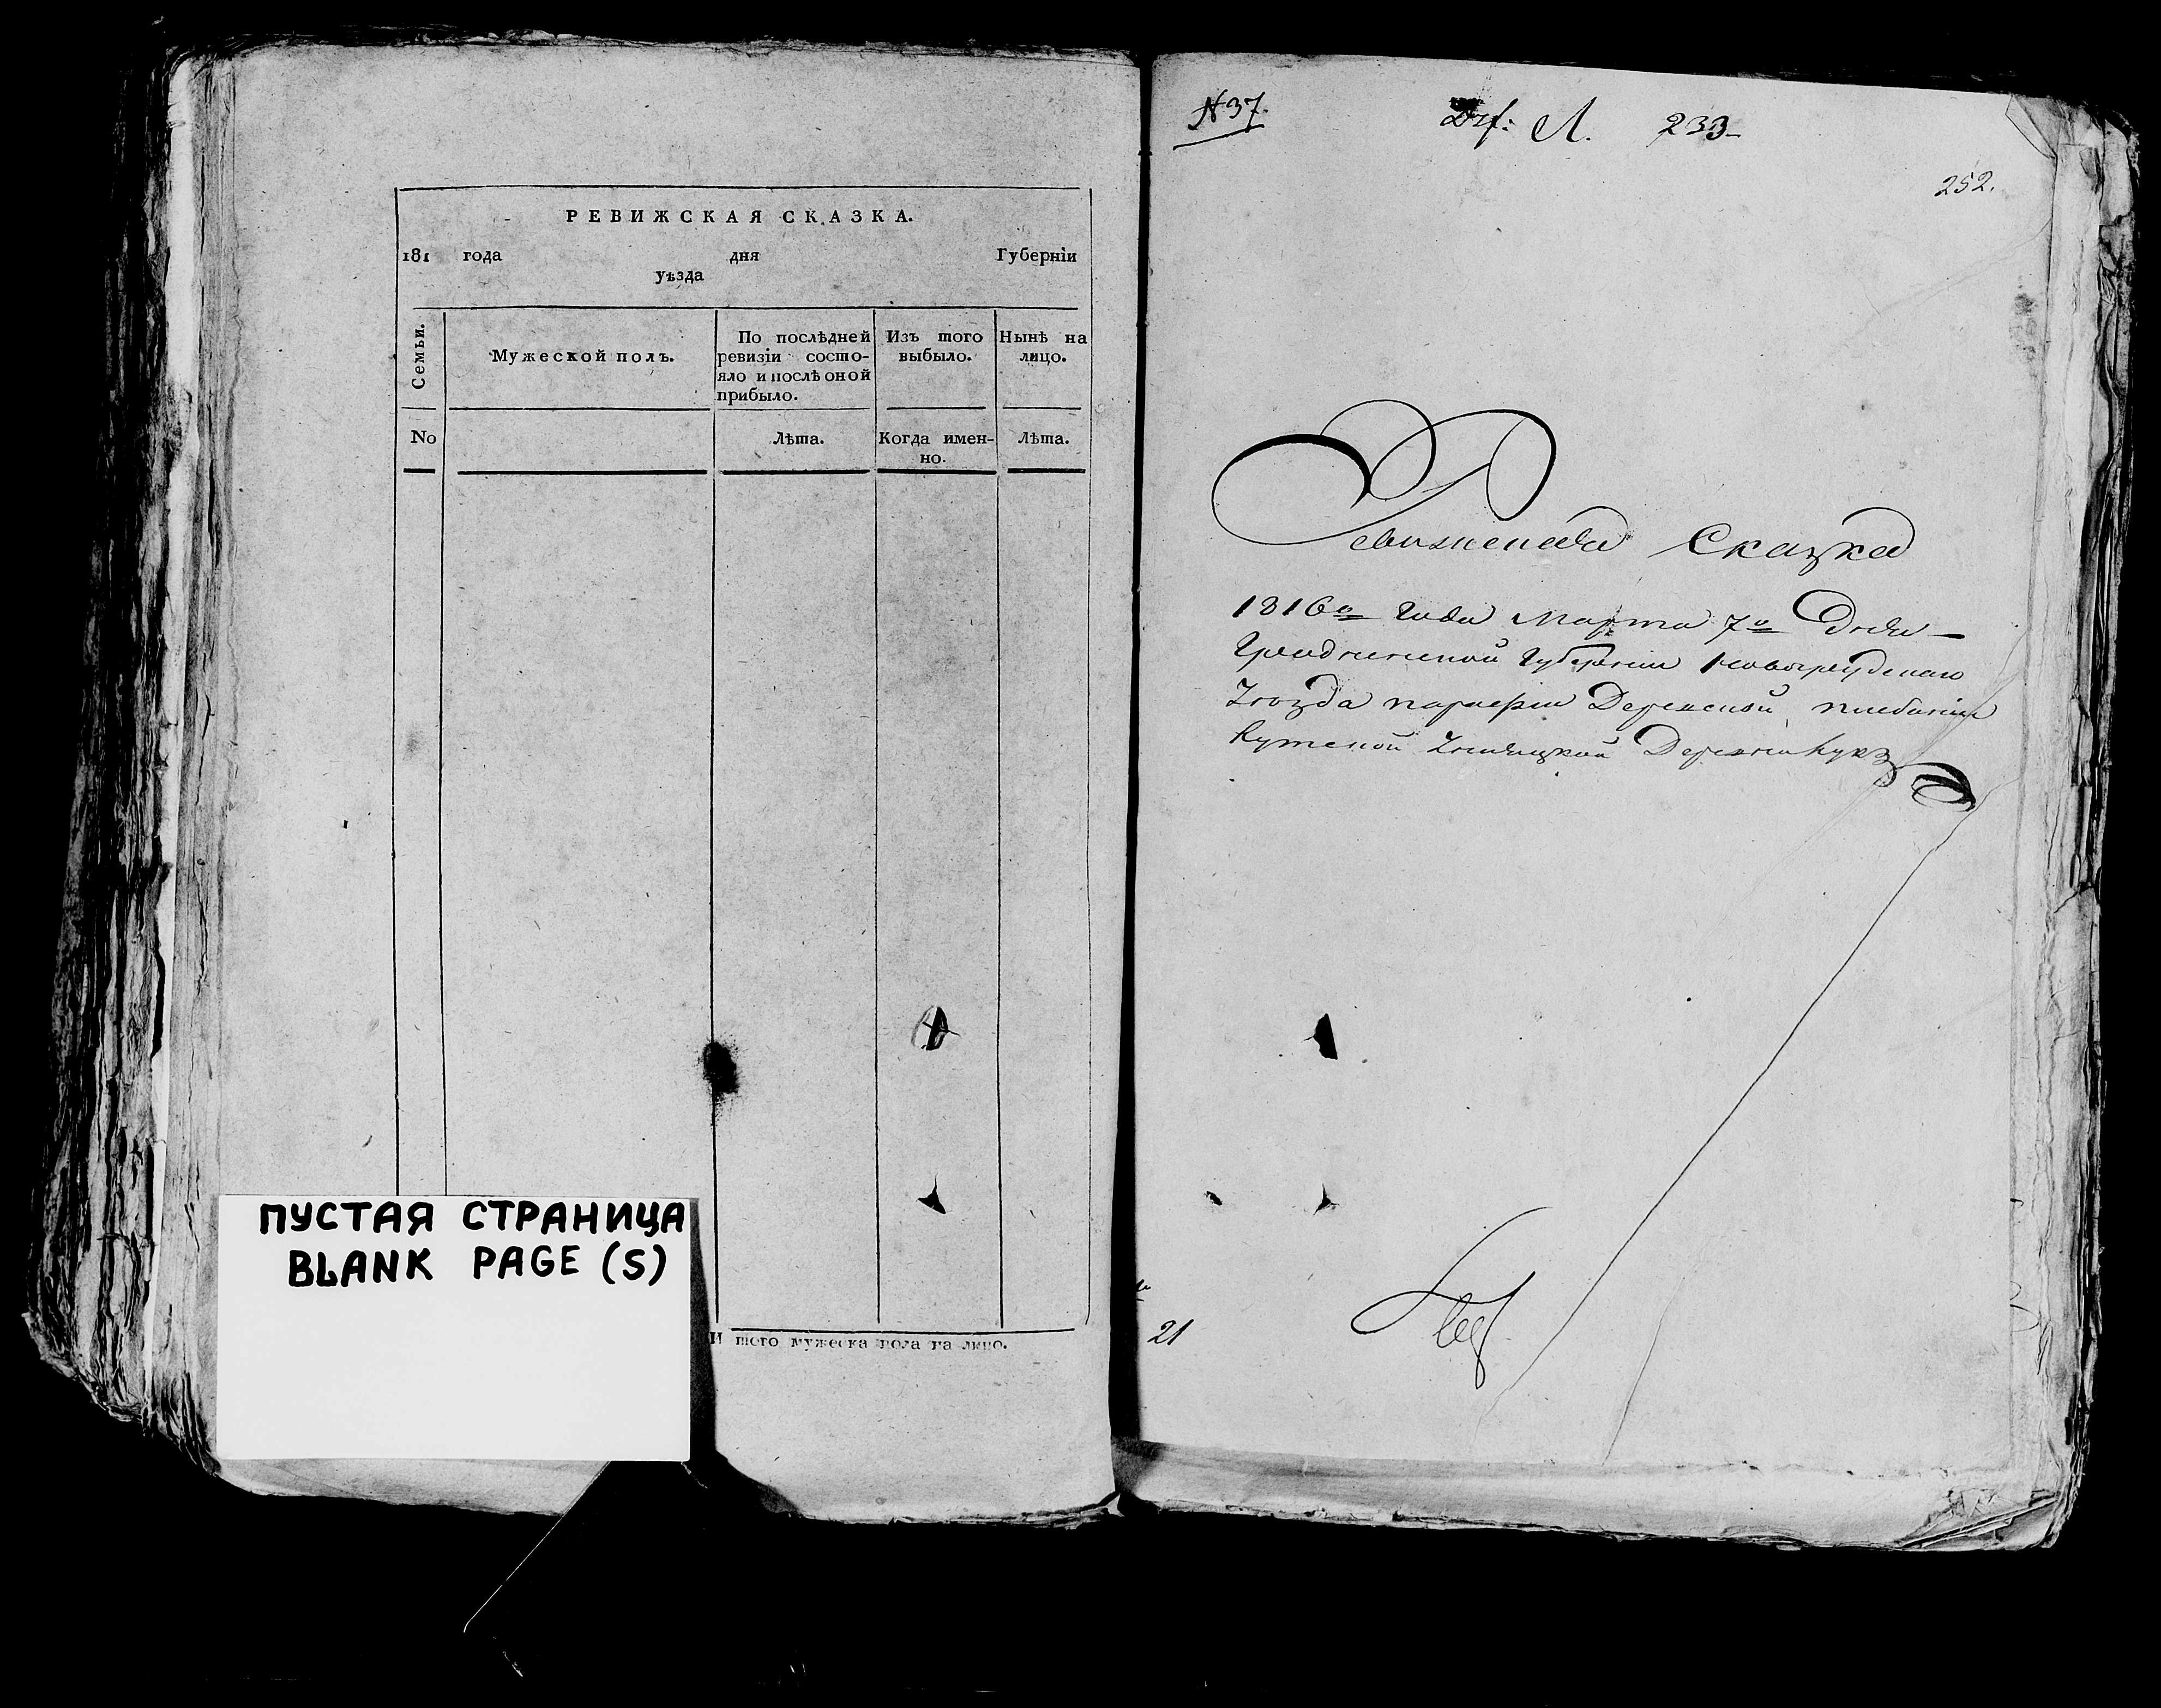 РЕВИЖСКАЯ СКАЗКА.
181 года дня Губерніи
уѣзда
Семьи.
Мужеской полъ.
По послѣдней ревизіи состо-
яло и послѣ оной
прибыло.
Изъ того
выбыло.
Нынѣ на
лицо.
No
Лѣта.
Когда имен-
но.
Лѣта.
И того мужеска пола на лицо.
ПУСТАЯ СТРАНИЦА
BLANK PAGE (S)
N37.
А. 233
252.
Ревижская Сказка
1816го Года Марта 7го Дня
Гродненской Губерніи Новогрудскаго
Уѣзда парафіи Деревской плебаніи
Деревни
21